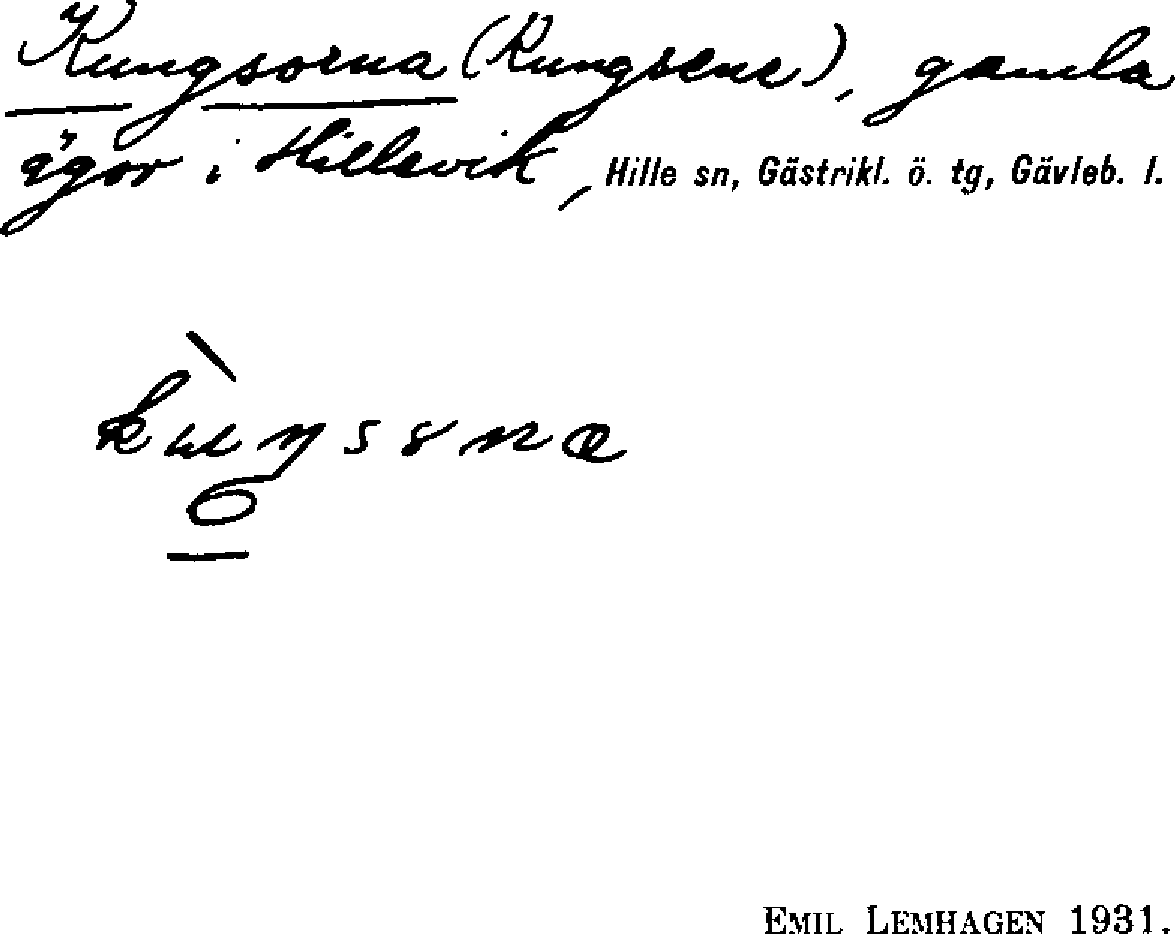 Kungsorna (Kungsene), gamla
ägor i Hillevik, Hille sn, Gästrikl. ö. tg, Gävleb. l.
EMIL LEMHAGEN 1931.